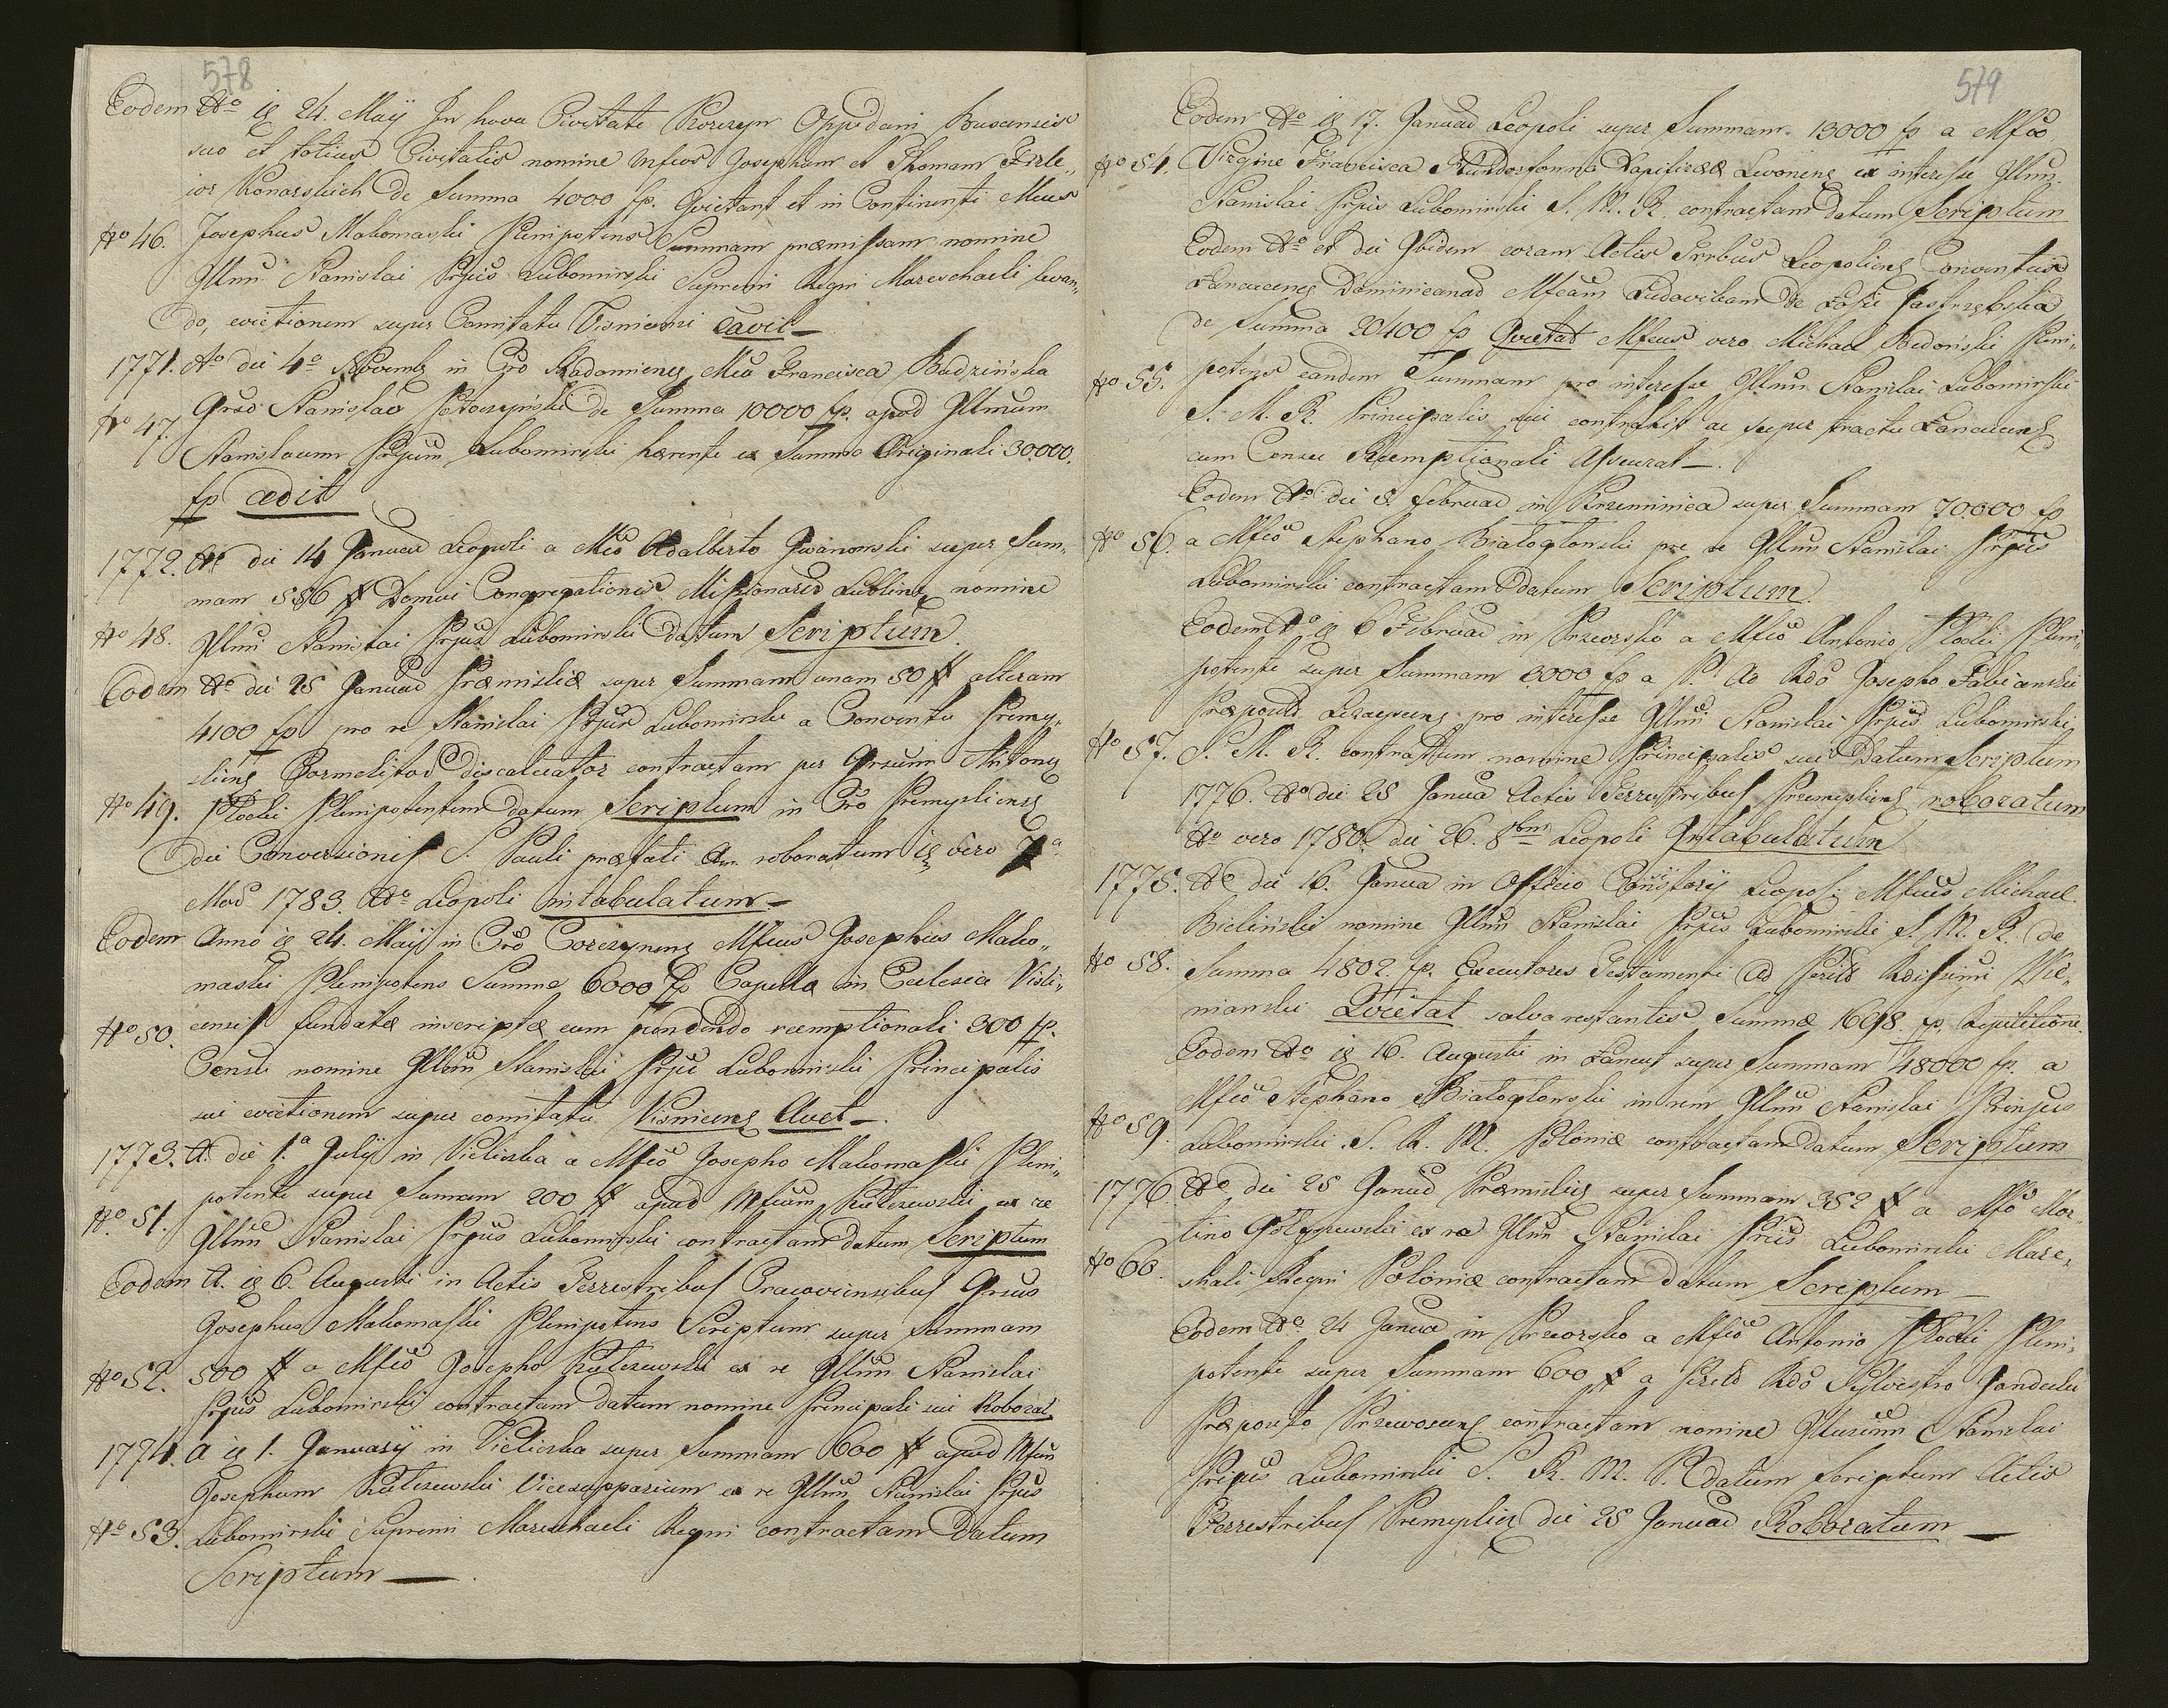 578
Eodem Ao ig 24. Maij In nova Civitate Korczyn Oppidani Buscenses
suo et totius Civitatis nomine Mfcos Josephum et Thomam
Konarskich de Summa 4000 fp. Quietant et in Continenti Mcus
No 46. Josephus Makomaski Plenipotens Summam præmissam nomine
Illmi Stanislai Prpis Lubomirski Supremi Regni Mareschalci levan„
do, evictionem super Comitatu Visnicensi Cavit—
1771. Ao die 4o Novemb in Cro Radomieng Mca Francisca Badzińska
No 47. Grso Stanislao de Summa 10000 fp. apud Illmum
Stanislaum Prpem Lubomirski hærente ex Summa Originali 30000.
fp cedit
1772. Ao die 14 Januar Leopoli a Mco Adalberto Iwanowski super Sum„
mam 556 # Domui Congregationis Missionar Lublin nomine
No 48. Illmi Stanislai Prpis Lubomirski datum Scriptum
Eodem Ao die 25 Januar Præmisliæ super Summam unam 50 # alteram
4100 fp pro re Stanislai Prpis Lubomirski a Conventu Premy„
slieng Carmelitar discalceator contractam per Grsum Antonig
No 49. Płocki Plenipotentem datum Scriptum in Cro Premysliensg
die Conversionis S. Pauli præfati An. roboratum ig vero 7a
1783. Ao Leopoli intabulatum—
Eodem Anno ig 24. Maij in Cro Corczyneng Mfcus Josephus Mako„
maski Plenipotens Summæ 6000 fp Capellæ in Ecclesia Visli„
No 50. censis fundatæ inscriptæ cum pendendo reemptionali 300 fp.
Censu nomine Illmi Stanislai Prpis Lubomirski Principalis
sui evictionem super comitatu Visniceng Avet—.
1773. A. die 1a Julij in Vielicska a Mfco Josepho Makomaski Pleni„
potente super Summam 200 # apud Mfcum Rutczewski ex re
No. 51. Illmi Stanislai Prpis Lubomirski contractam datum Scriptum
Eodem A. ig 6. Augusti in Actis Terrestribus Cracoviensibus Grsus
Josephus Makomaski Plenipotens Scriptum super Summam
No 52. 500 # a Mfco Josepho Rutczewski ex re Illmi Stanislai
Prpis Lubomirski contractam datum nomine Principali sui Roborat
1774. A ig 1. Januarij in Vielicska super Summam 600 # apud Mfcum
Josephum Rutczewski Vicesupparium ex re Illmi Stanislai Prpis
No 53. Lubomirski Supremi Mareschalci Regni contractam Datum
Scriptum—.
579
Eodem Ao ig 17. Januar Leopoli super Summam 13000 fp a Mfco
No 54. Virgine Francisca Dapiferæ ex interesse Illmi
Stanislai Prpis Lubomirski S. M. R. contractam datum Scriptum
Eodem Ao et die Ibidem coram Actis Leopolieng Conventus
Lancuceng Dominicanor Mfcam Ludovicam De Łosie
de Summa 20400 fp Quietat Mfcus vero Michael Pleni„
No 55. potens eandem Summam pro interesse Illmi Stanislai Lubomirski
S. M. R. Principalis sui contrahit ac super tractu Lancuceng
cum Censu Reemptionali Assecurat—.
Eodem Ao die 8 Februar in Krzemienica super Summam 70000 fp
No 56. a Mfco Stephano Białogłowski pro re Illmi Stanislai Prpis
Lubomirski contractam datum Scriptum
Eodem Ao ig 6 Februar in Przeworsko a Mfco Antonio Płocki Pleni„
potente super Summam 6000 fp a Pl Ad Rdo Josepho Fabianski
Præposito pro interesse Illmi Stanislai Prpis Lubomirski
No 57. S. M. R. contractam nomine Principalis sui Datum Scriptum
1776. Ao die 25 Janua Actis Terrestribus Premyslieng roboratum
Ao vero 1780. die 26. 8bris Leopoli Intabulatum
1775. Ao die 16. Janua in Officio Consistorij Leopol. Mfcus Michael
Bieliński nomine Illmi Stanislai Prpis Lubomirski S. M. R. de
No 58. Summa 4802. fp. Executores Testamenti Ad
Quietat salva restantis Summæ 1698. fp. Repetitione
Eodem Ao ig 16. Augusti in Łancut super Summam 48000 fp. a
Mfco Stephano Białogłowski in rem Illmi Stanislai Prinpis
No 59. Lubomirski S. R. M. Poloniæ contractam datum Scriptum
1776. Ao die 25 Janua Præmislig super Summam 352 # a Mfco Mar„
tino ex re Illmi Stanislai Prpis Lubomirski Mare„
No 60. shali Regni Poloniæ contractam datum Scriptum—
Eodem Ao 24 Janua in Przeworsko a Mfco Antonio Płocki Pleni„
potente super Summam 600 # a Rdo Sylvestro
Præposito Przeworsceng contractam nomine Stanislai
Pripis Lubomirski S. R. M. P. datum Scriptum Actis
Terrestribus Premyslig die 25 Januar Roboratum—